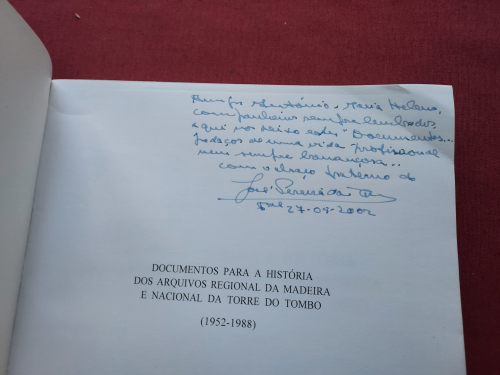 António e Maria Helena,
companheiros sempre lembrados,
aqui vos deixo estes "Documentos...
pedaços de uma vida profissional
nem sempre bonançosa...
com o abraço fraterno do
José Pereira da Costa
27-09-2002
DOCUMENTOS PARA A HISTÓRIA
DOS ARQUIVOS REGIONAL DA MADEIRA
E NACIONAL DA TORRE DO TOMBO
(1952-1988)